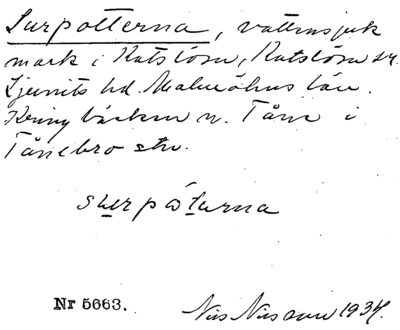 Surpotterna, vattensjuk
mark i Katslösa, Katslösa sn.
Ljunits hd. Malmöhus län.
Kring bäcken n. Tån i
Tånebro
surpåturna
Nr 5663. Nils Nilsson 1934.